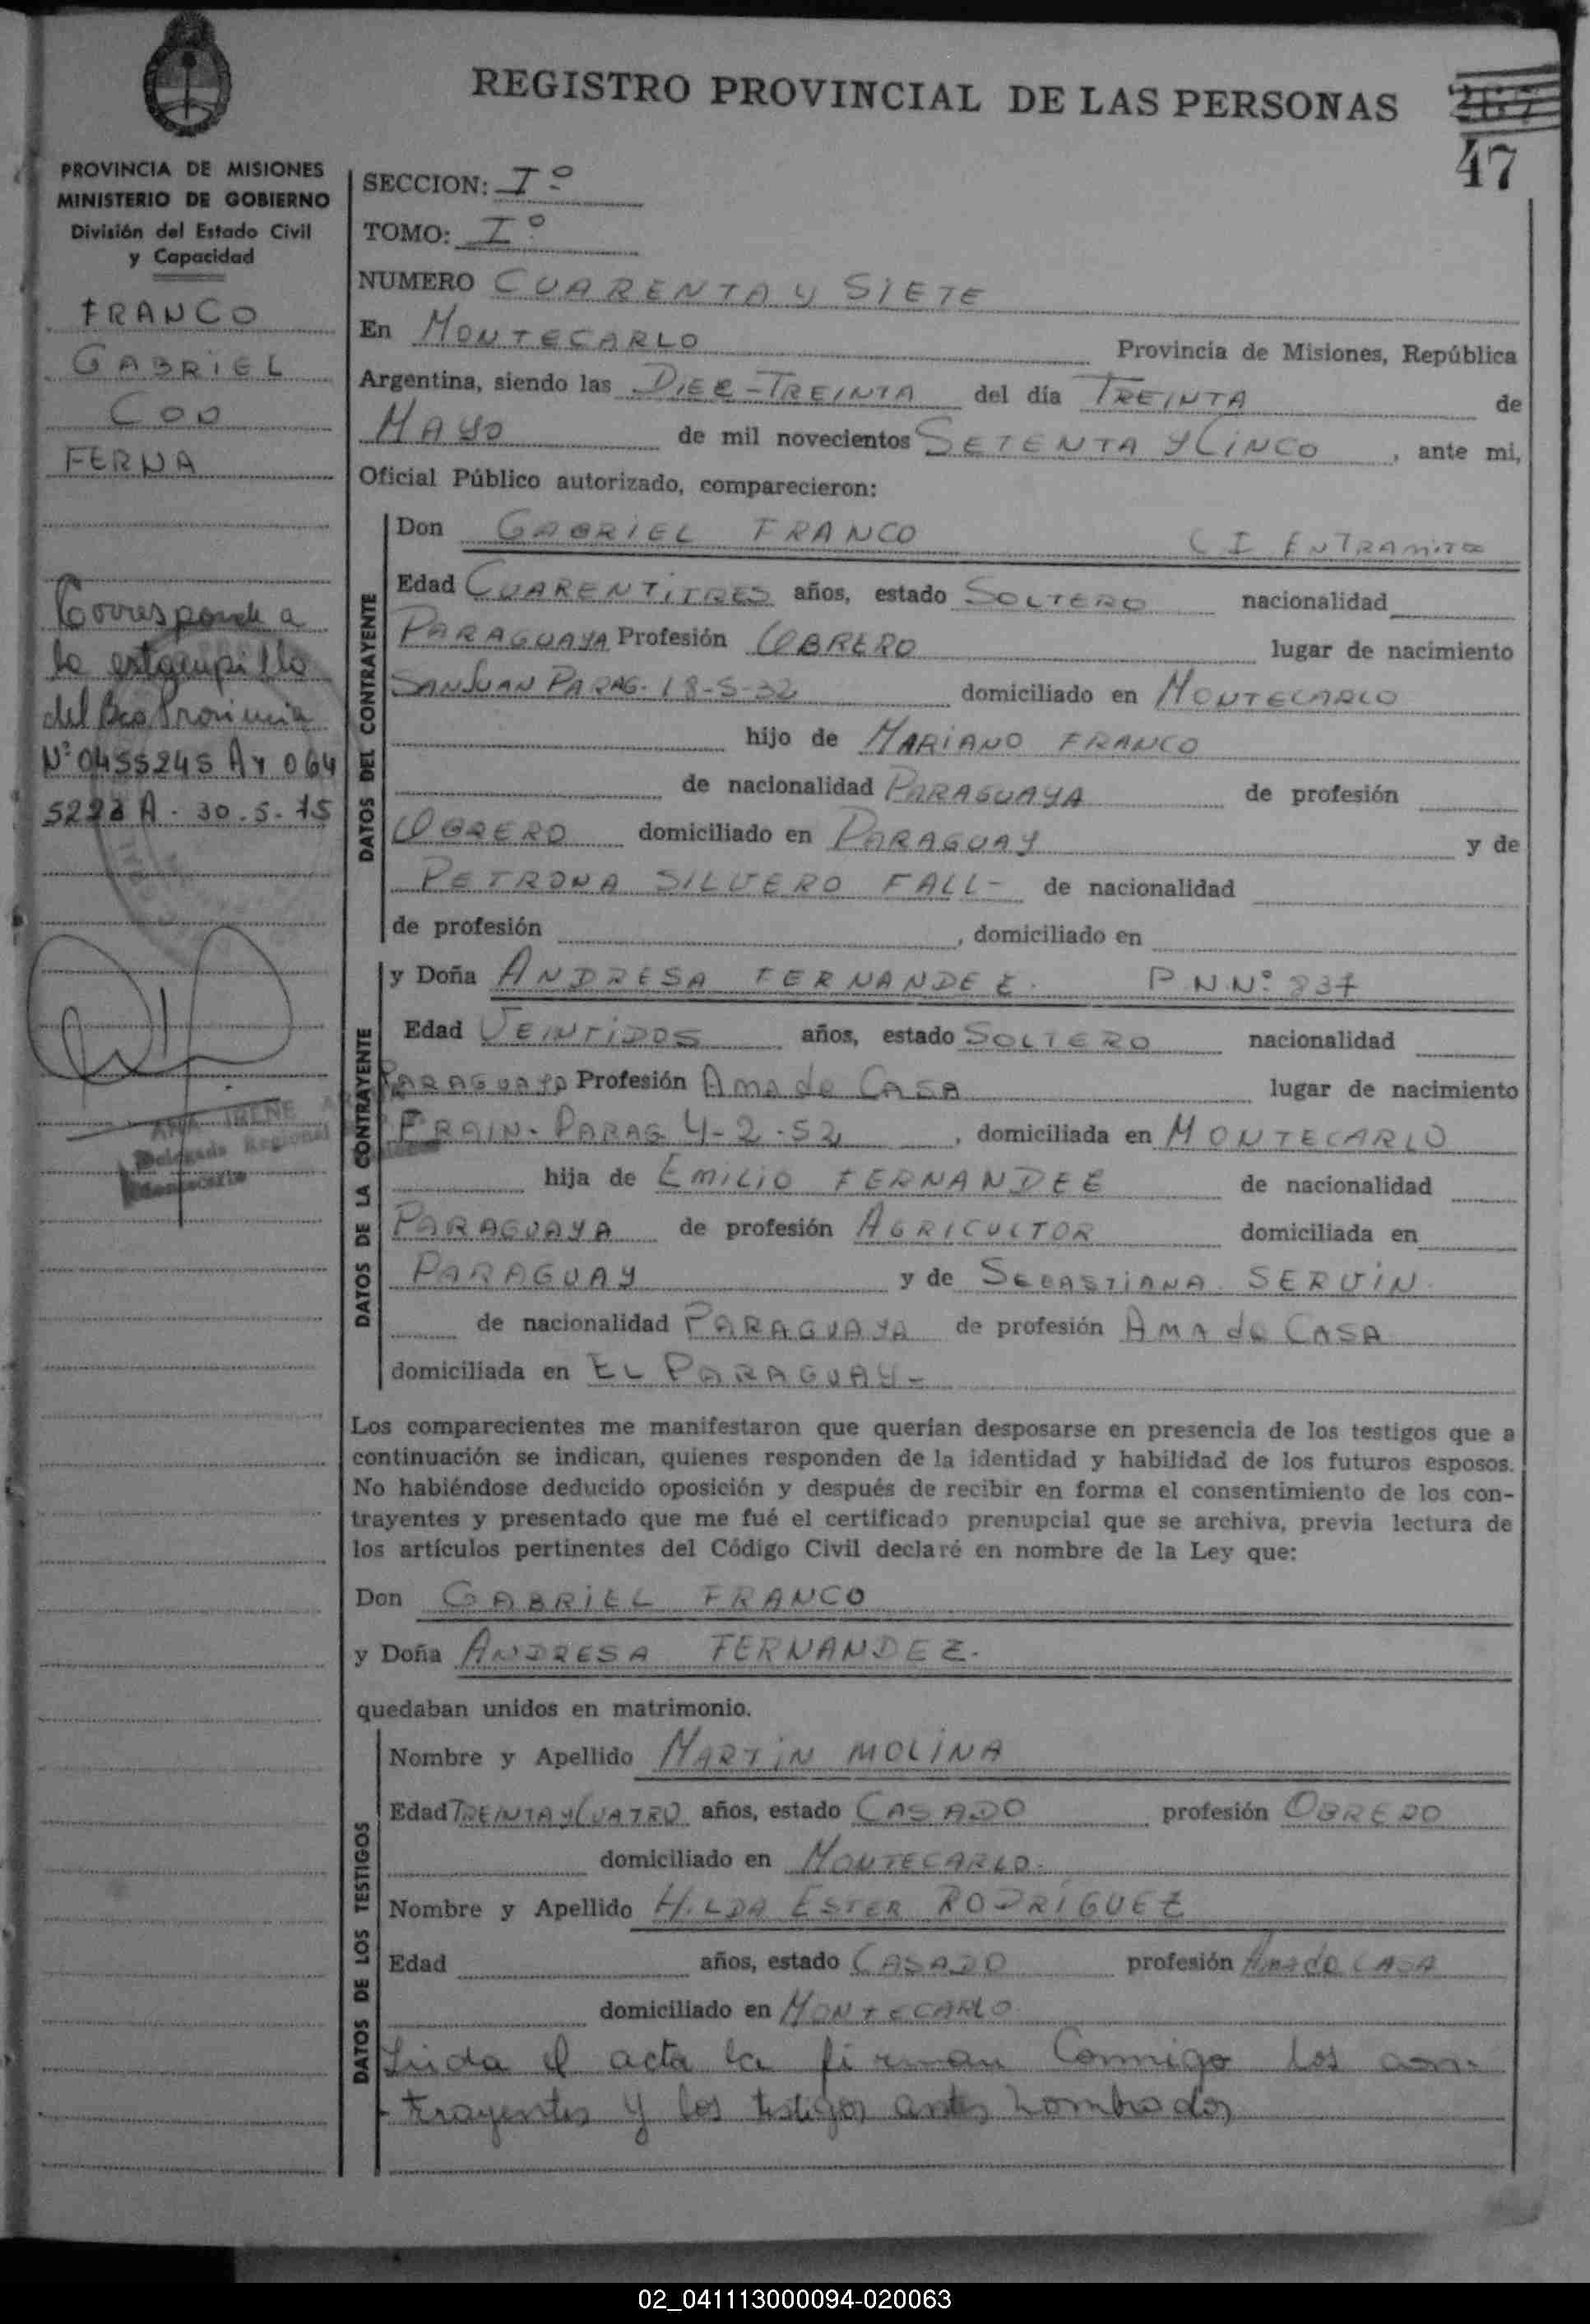 REGISTRO PROVINCIAL DE LAS PERSONAS
47
PROVINCIA DE MISIONES
MINISTERIO DE GOBIERNO
División del Estado Civil
y Capacidad
FRANCO
GABRIEL
COD
FERNA
Corresponde a
la estampilla
del Bco Provincia
Nº 0455245 A y 064
522 A - 30.5.75
ANA IRENE
Delegada Regional
Montecarlo
SECCION: Iº
TOMO: Iº
NUMERO CUARENTA y SIETE
En MONTECARLO Provincia de Misiones, República
Argentina, siendo las DIEZ-TREINTA del día TREINTA de
MAYO de mil novecientos SETENTA y CINCO, ante mi,
Oficial Público autorizado, comparecieron:
DATOS DEL CONTRAYENTE
Don GABRIEL FRANCO CI EN TRAMITE
Edad CUARENTITRES años, estado SOLTERO nacionalidad
PARAGUAYA Profesión OBRERO lugar de nacimiento
SAN JUAN PARAG. 18-5-32 domiciliado en MONTECARLO
hijo de MARIANO FRANCO
de nacionalidad PARAGUAYA de profesión
OBRERO domiciliado en PARAGUAY y de
PETRONA SILVERO FALL- de nacionalidad
de profesión , domiciliado en
DATOS DE LA CONTRAYENTE
y Doña ANDRESA FERNANDEZ. P.N.Nº 837
Edad VEINTIDOS años, estado SOLTERO nacionalidad
PARAGUAYA Profesión AMA de CASA lugar de nacimiento
PARAG 4-2-52, domiciliada en MONTECARLO
hija de EMILIO FERNANDEZ de nacionalidad
PARAGUAYA de profesión AGRICULTOR domiciliada en
PARAGUAY y de SEBASTIANA SERVIN
de nacionalidad PARAGUAYA de profesión AMA de CASA
domiciliada en EL PARAGUAY-
Los comparecientes me manifestaron que querían desposarse en presencia de los testigos que a
continuación se indican, quienes responden de la identidad y habilidad de los futuros esposos.
No habiéndose deducido oposición y después de recibir en forma el consentimiento de los con-
trayentes y presentado que me fué el certificado prenupcial que se archiva, previa lectura de
los artículos pertinentes del Código Civil declaré en nombre de la Ley que:
Don GABRIEL FRANCO
y Doña ANDRESA FERNANDEZ.
quedaban unidos en matrimonio.
DATOS DE LOS TESTIGOS
Nombre y Apellido MARTIN MOLINA
Edad TREINTA y CUATRO años, estado CASADO profesión OBRERO
domiciliado en MONTECARLO.
Nombre y Apellido HILDA ESTER RODRIGUEZ
Edad años, estado CASADO profesión Ama de CASA
domiciliado en MONTECARLO
Leida el acta la firman conmigo los con-
trayentes y los testigos antes nombrados
02_041113000094-020063